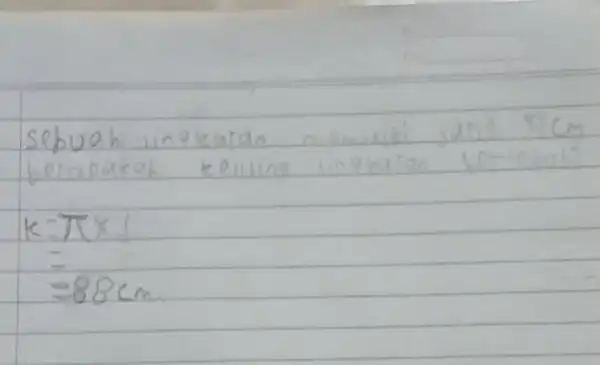 sebuah lingkaran cm
berapakah keliling lingkaran tersebut?
K = π x
=
= 88 cm